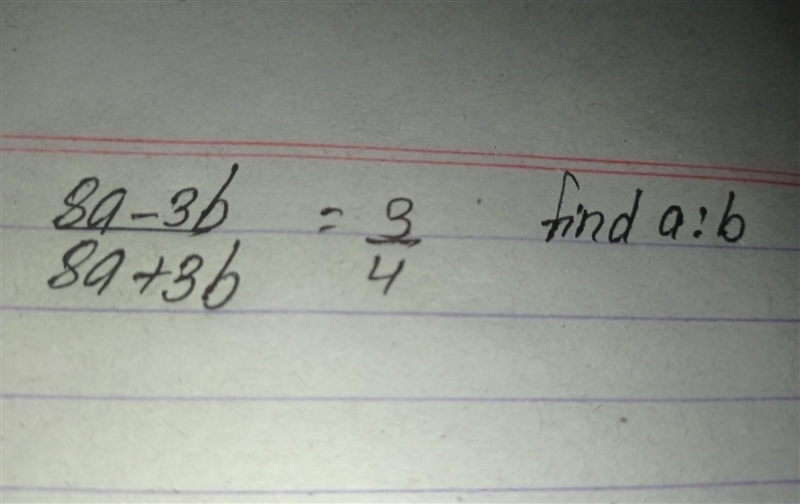 8a-3b / 8a+3b = 3/4 find a:b